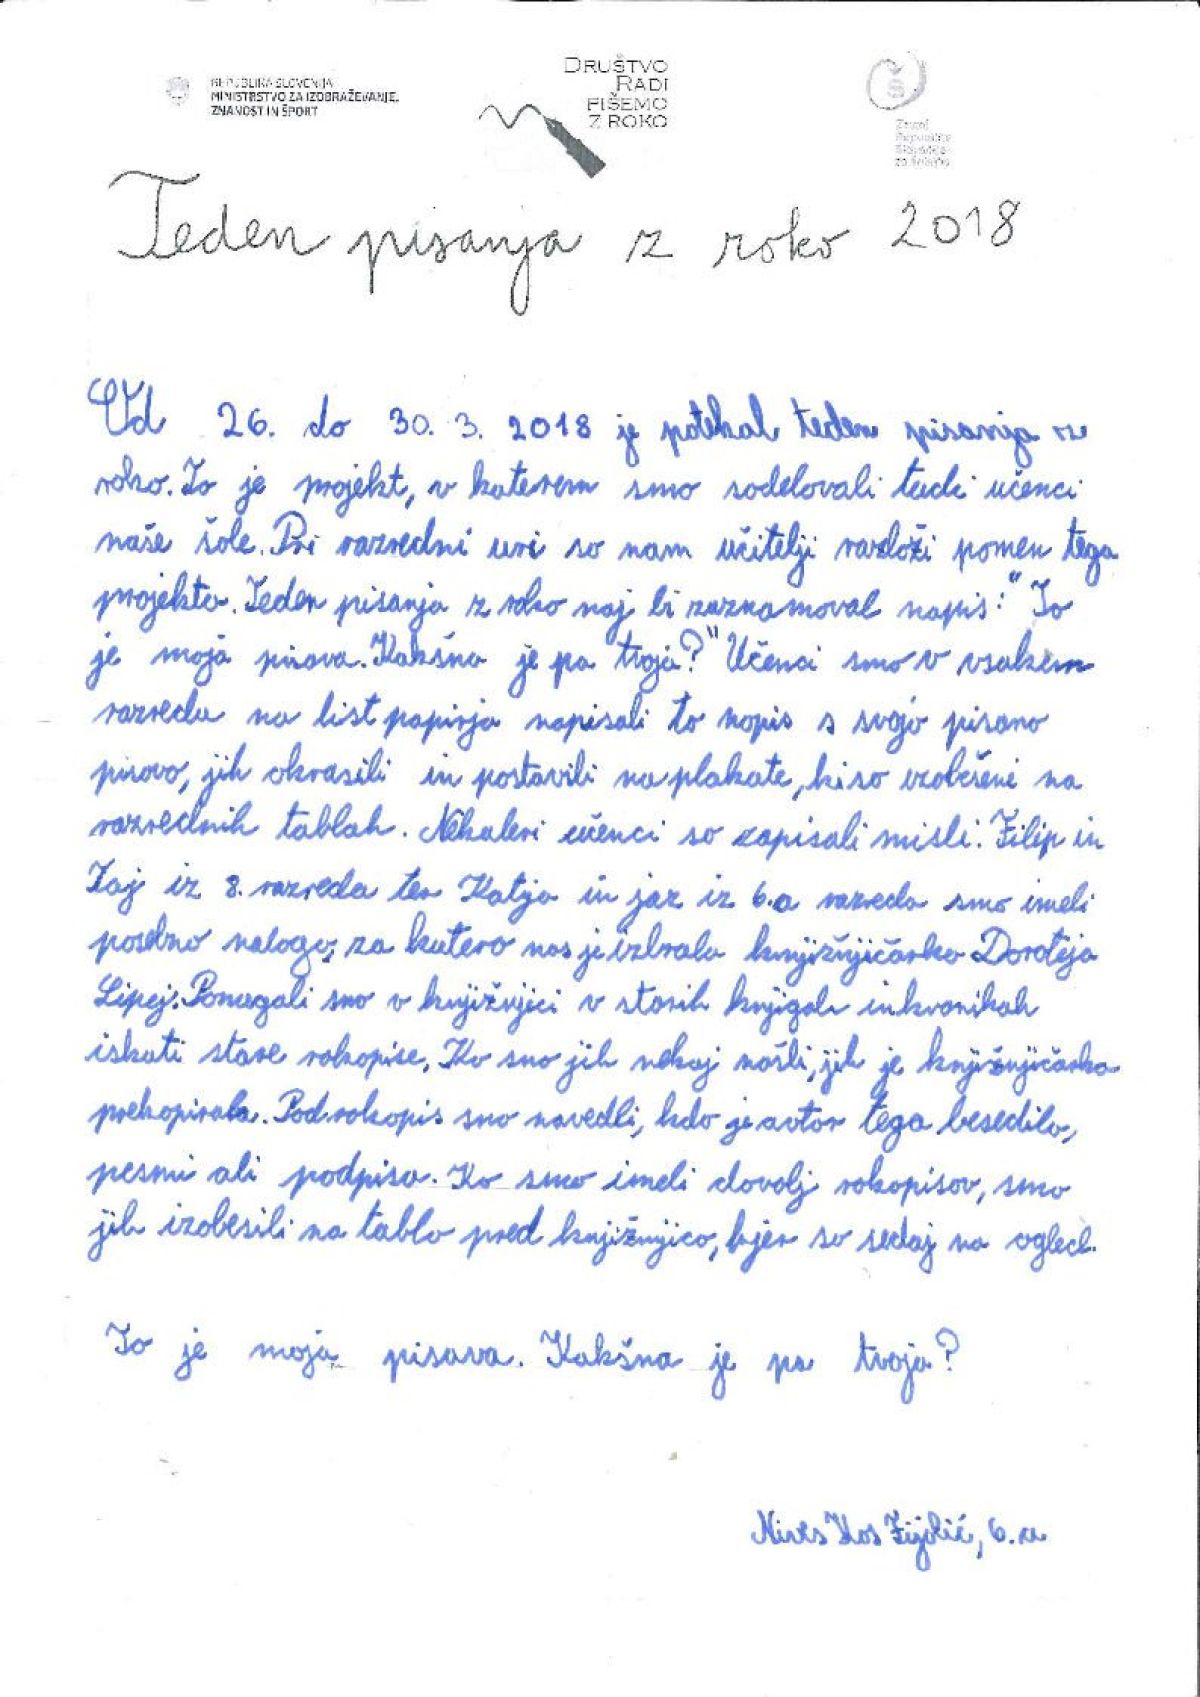 REPUBLIKA SLOVENIJA
MINISTRSTVO ZA IZOBRAŽEVANJE,
ZNANOST IN ŠPORT
DRUŠTVO
RADI
PIŠEMO
Z ROKO
Zavod
Republike
Slovenije
za šolstvo
Teden pisanja z roko 2018
Od 26. do 30. 3. 2018 je potekal teden pisanja z
roko. To je projekt, v katerem smo sodelovali tudi učenci
naše šole. Pri razredni uri so nam učitelji razloži pomen tega
projekta. Teden pisanja z roko naj bi zaznamoval napis: "To
je moja pisava. Kakšna je pa tvoja?" Učenci smo v vsakem
razredu na list papirja napisali to napis s svojo pisano
pisavo, jih okrasili in postavili na plakate, ki so izobešeni na
razrednih tablah. Nekateri učenci so zapisali misli. Filip in
Taj iz 8. razreda ter Katja in jaz iz 6.a razreda smo imeli
posebno nalogo, za katero nas je izbrala knjižnjičarka Doroteja
Lipej. Pomagali smo v knjižnjici v starih knjigah in kronikah
iskati stare rokopise. Ko smo jih nekaj našli, jih je knjižnjičarka
prekopirala. Pod rokopis smo navedli, kdo je avtor tega besedila,
pesmi ali podpisa. Ko smo imeli dovolj rokopisov, smo
jih izobesili na tablo pred knjižnjico, kjer so sedaj na ogled.
To je moja pisava. Kakšna je pa tvoja?
Kos 6. a